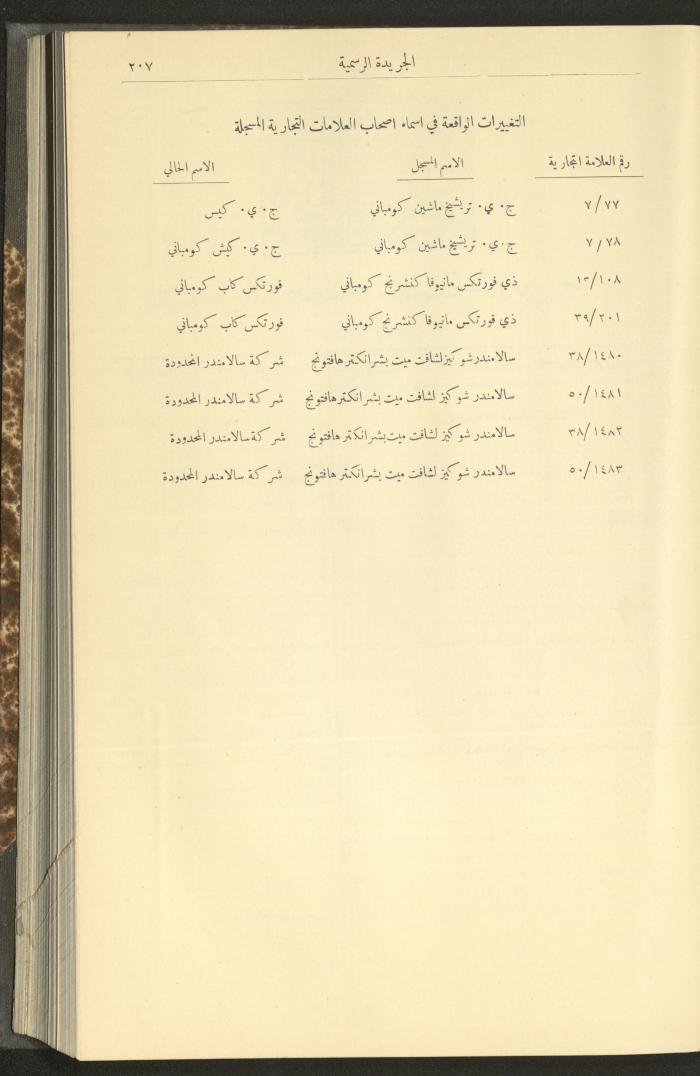 الجريدة الرسمية ٢٠٧
التغييرات الواقعة في اسماء اصحاب العلامات التجارية المسجلة
رقم العلامة التجارية الاسم المسجل الاسم الحالي
٧/٧٧ ج٠ ي٠ تريشيخ ماشين كومباني ج٠ ي٠ كيس
٧/٧٨ ج٠ ي٠ تريشيخ ماشين كومباني ج٠ ي٠ كيش كومباني
١٣/١٠٨ ذي فورتكس مانيوفاكنشرنج كومباني فورتكس كاب كومباني
٣٩/٢٠١ ذي فورتكس مانيوفاكنشرنج كومباني فورتكس كاب كومباني
٣٨/١٤٨٠ سالامندر شوكيزلشافت ميت بشرانكتر هافتونج شركة سالامندر المحدودة
٥٠/١٤٨١ سالامندر شوكيز لشافت ميت بشرانكتر هافتونج شركة سالامندر المحدودة
٣٨/١٤٨٢ سالامندر شوكيز لشافت ميت بشرانكتر هافتونج شركة سالامندر المحدودة
٥٠/١٤٨٣ سالامندر شوكيز لشافت ميت بشرانكتر هافتونج شركة سالامندر المحدودة